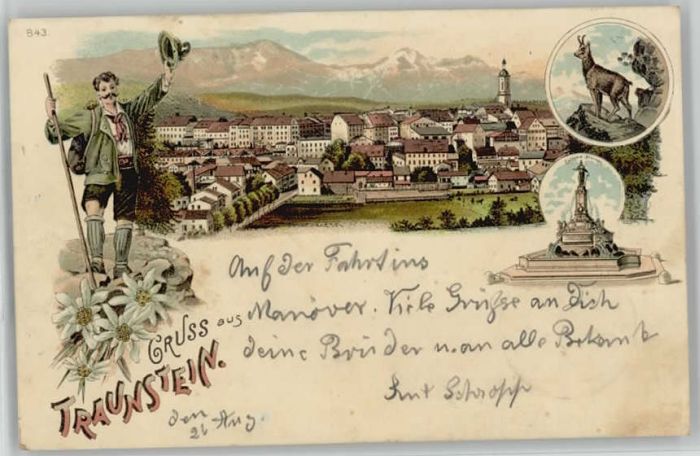 843.
Auf der Fahrt ins
Manöver. Viele Grüsse an Dich
deine Brüder u. an alle Bekannte
GRUSS AUS
TRAUNSTEIN.
den
26 Aug.